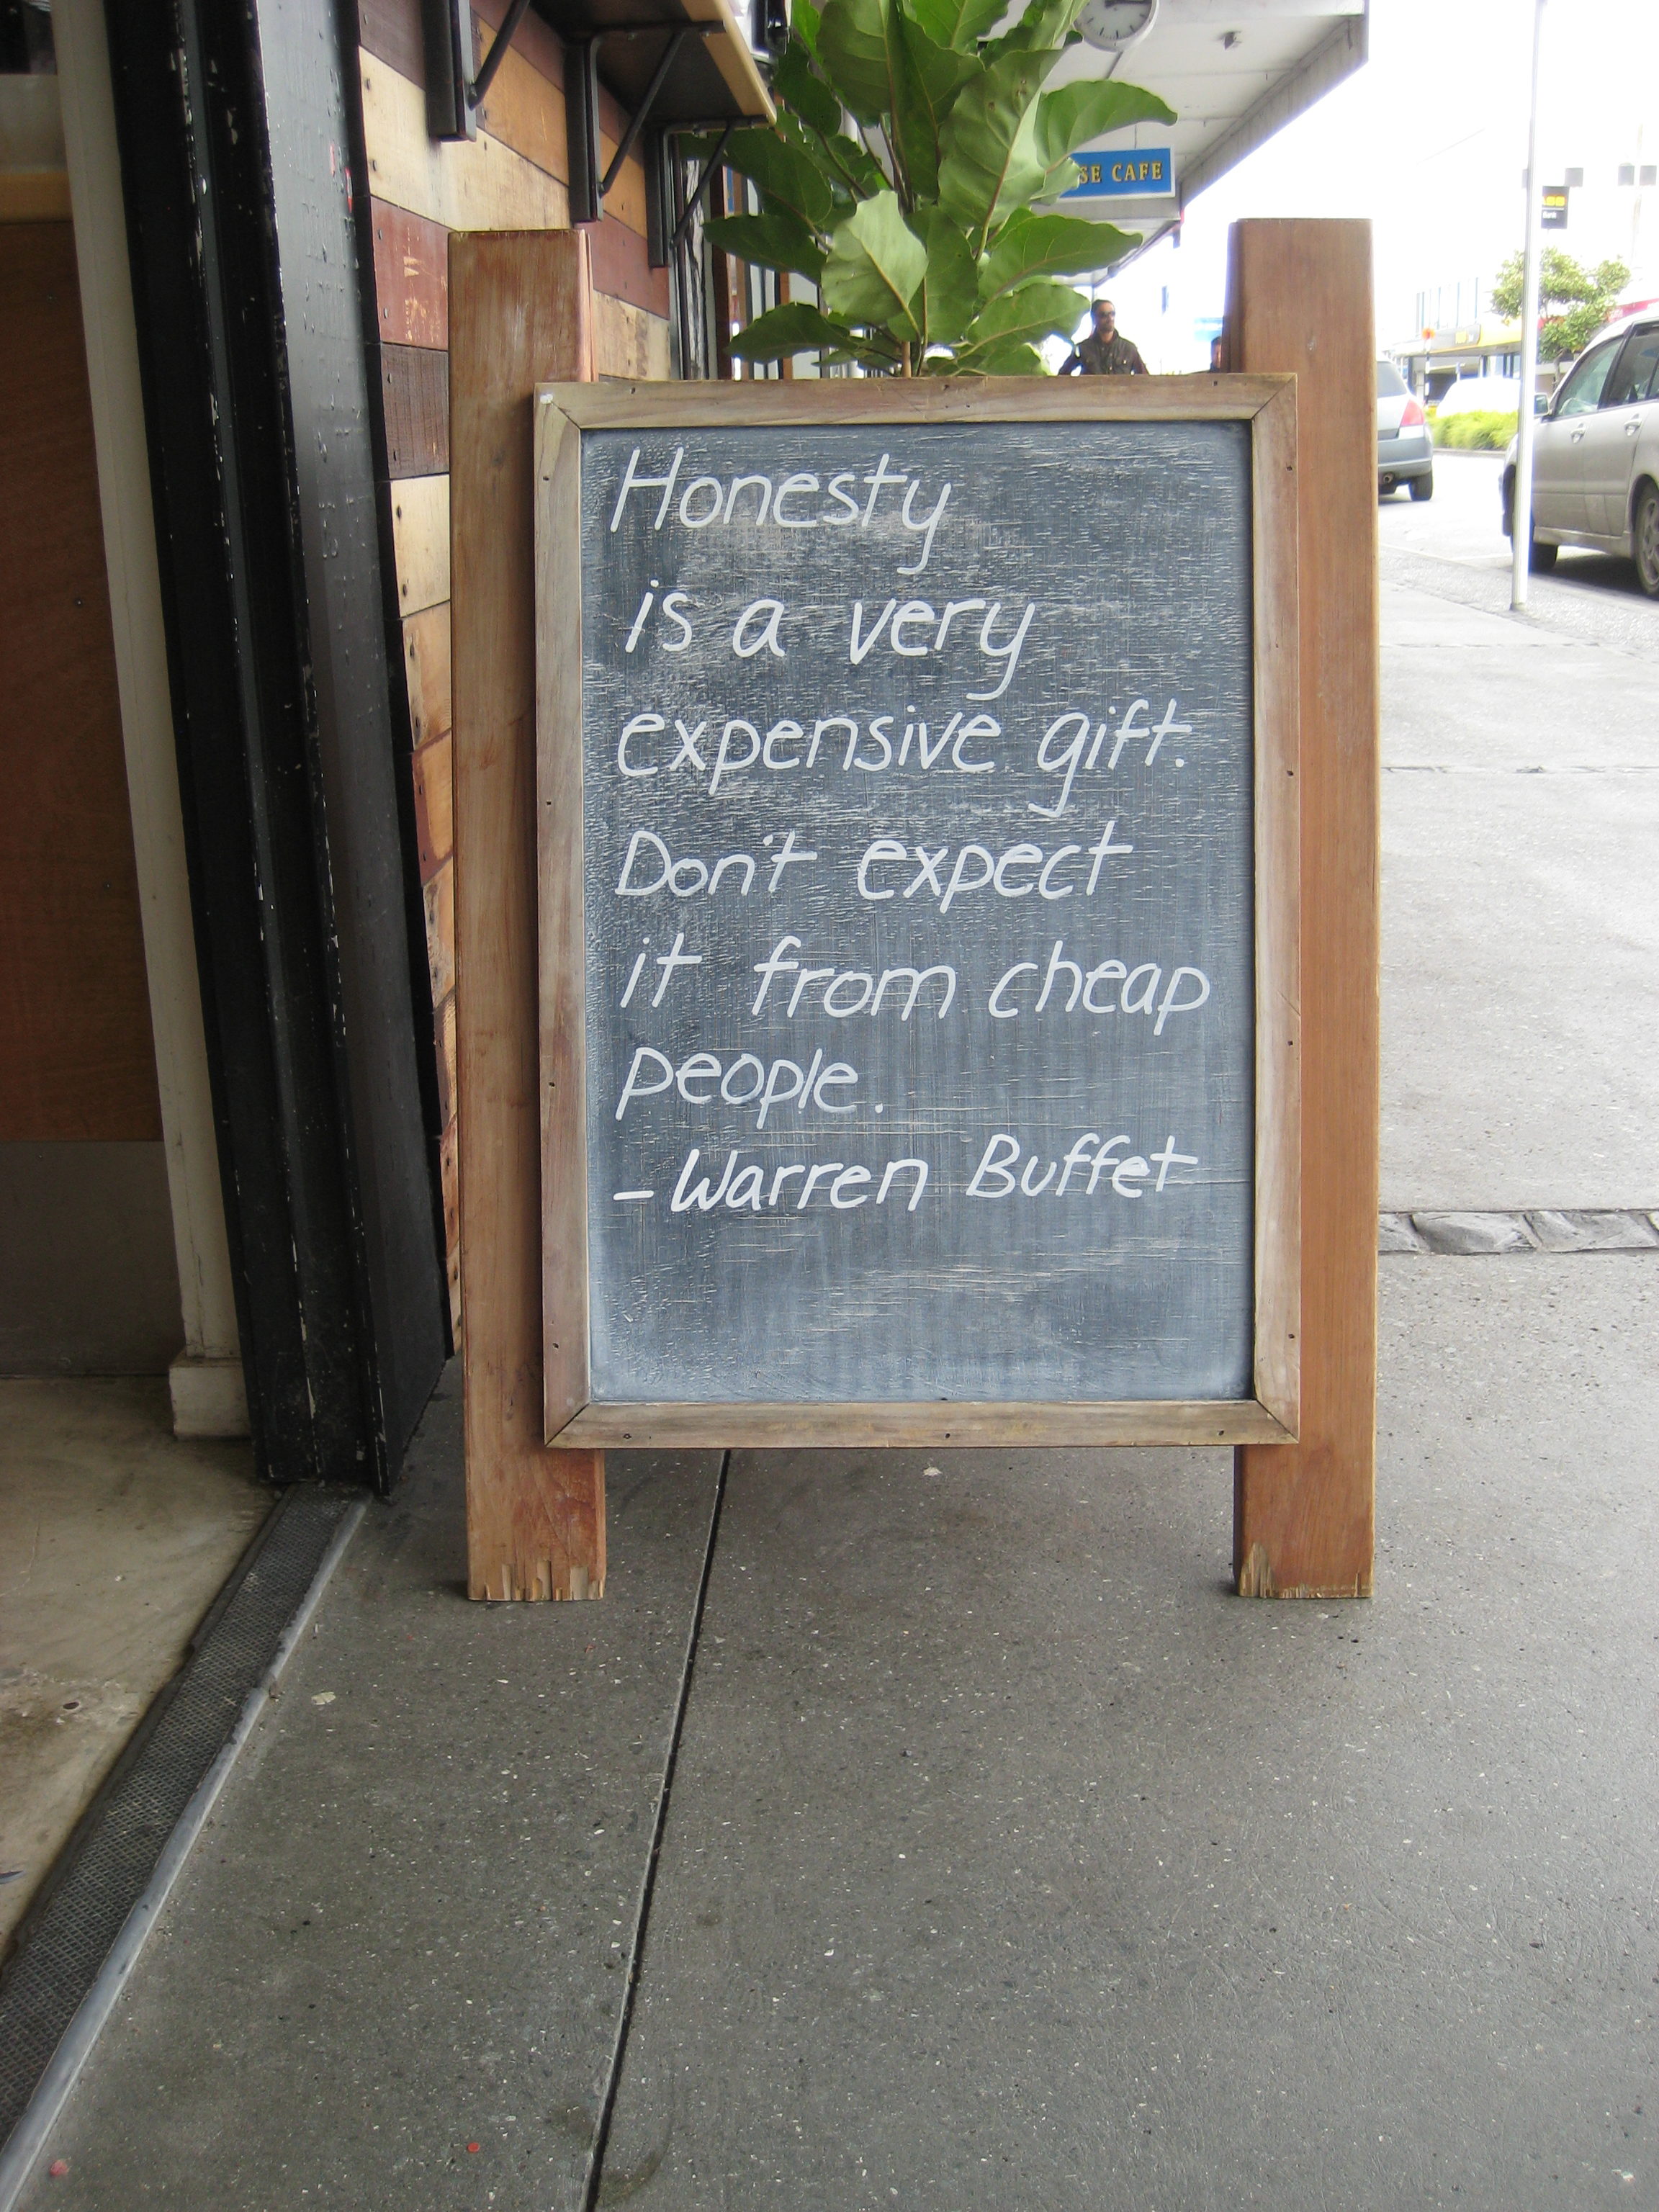 SE CAFE
Honesty
is a very
expensive gift.
Don't expect
it from cheap
people.
- Warren Buffet